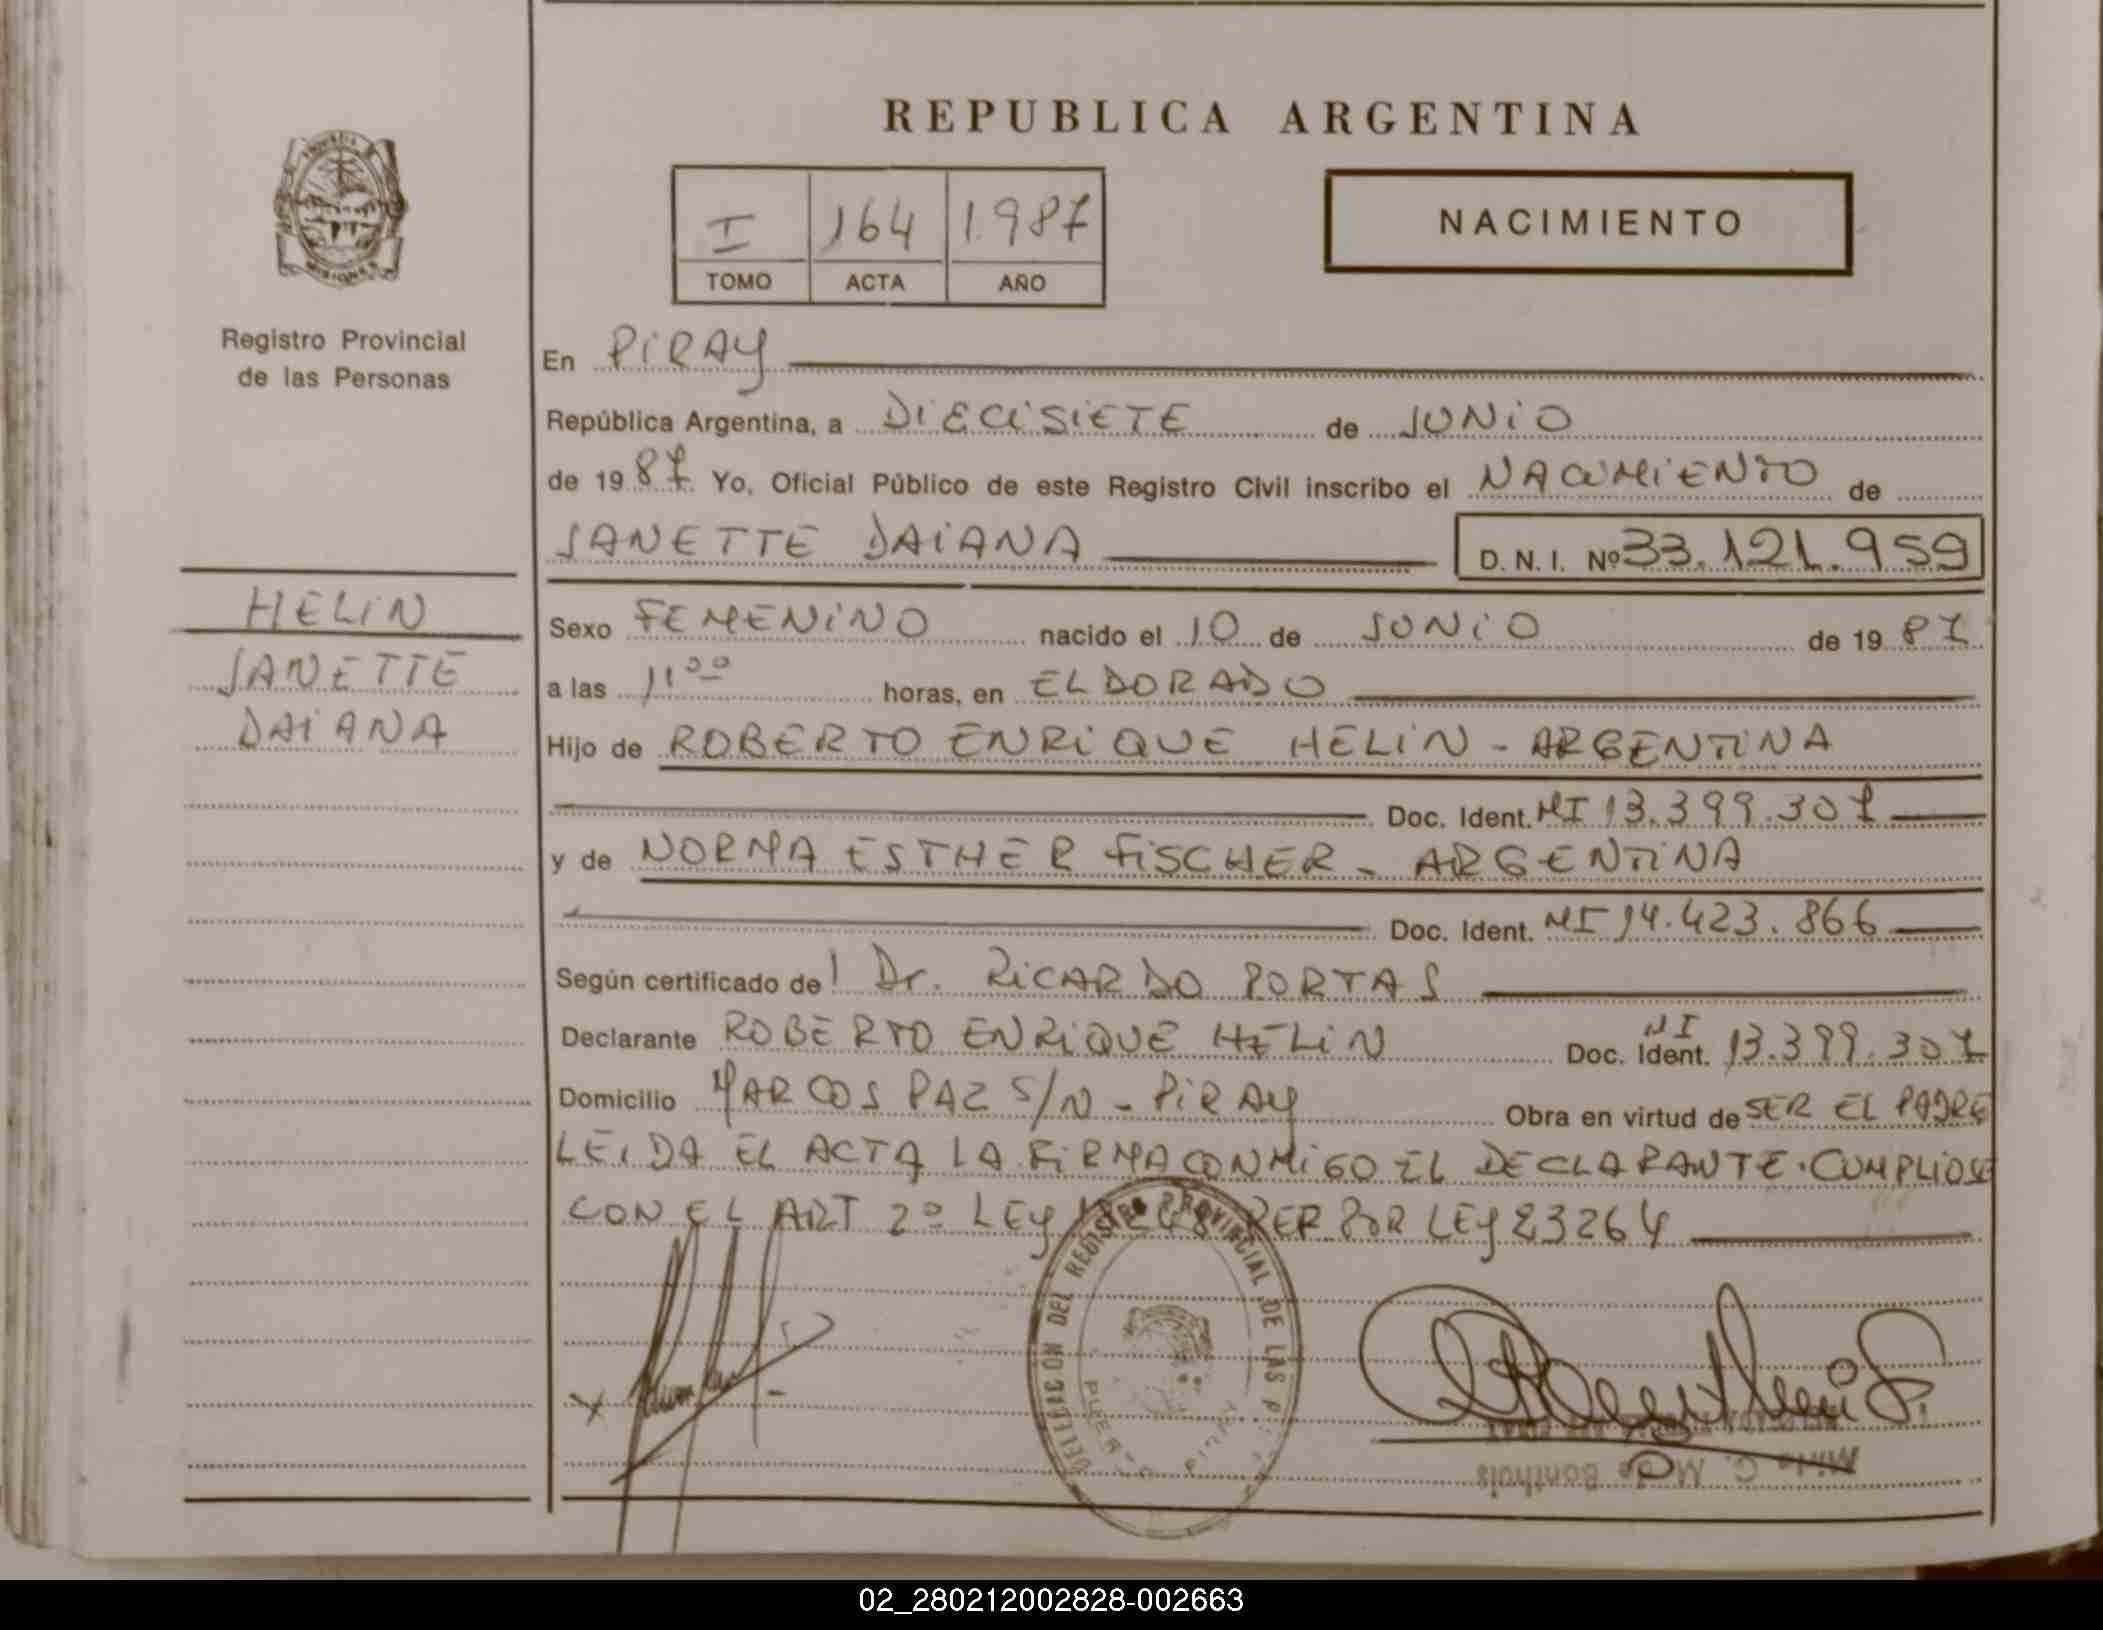 REPUBLICA ARGENTINA
I 164 1.987
TOMO ACTA AÑO
NACIMIENTO
Registro Provincial
de las Personas
HELIN
JANETTE
DAIANA
En PIRAY
República Argentina, a DIECISIETE de JUNIO
de 19 87 Yo, Oficial Público de este Registro Civil inscribo el NACIMIENTO de
JANETTE DAIANA D. N. I. Nº 33.121.959
Sexo FEMENINO nacido el 10 de JUNIO de 19 87
a las 11⁰⁰ horas, en ELDORADO
Hijo de ROBERTO ENRIQUE HELIN - ARGENTINA
Doc. Ident. MI 13.399.307
y de NORMA ESTHER FISCHER - ARGENTINA
Doc. Ident. MI 14.423.866
Según certificado de l Dr. RICARDO PORTAS
Declarante ROBERTO ENRIQUE HELIN Doc. Ident. MI 13.399.307
Domicilio MARCOS PAZ S/N - PIRAY Obra en virtud de SER EL PADRE
LEIDA EL ACTA LA FIRMA CONMIGO EL DECLARANTE. CUMPLIOSE
CON EL ART 2º LEY POR LEY 23264
DELEGACION DEL REGISTRO PROVINCIAL DE LAS
PUERTO PIRAY
02_280212002828-002663